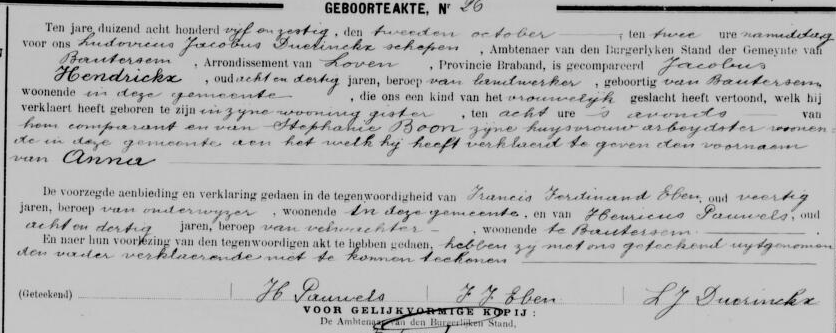 GEBOORTEAKTE, Nr 26
Ten jare duizend acht honderd vyf en zestig, den tweeden october, ten twee ure namiddag
voor ons Ludovicus Jacobus Duerinckx schepen, Ambtenaer van den Burgerlyken Stand der Gemeynte van
Bautersem, Arrondissement van Loven, Provincie Braband, is gecompareerd Jacobus
Hendrickx, oud acht en dertig jaren, beroep van landwerker, geboortig van Bautersem,
woonende in deze gemeente, die ons een kind van het vrouwelijk geslacht heeft vertoond, welk hij
verklaert heeft geboren te zijn in zyne wooning gister, ten acht ure 's avonds van
hem comparant en van Stephanie Boon zyne huysvrouw arbeydster woonen-
de in deze gemeente aen het welk hij heeft verklaerd te geven den voornaem
van Anna
De voorzegde aenbieding en verklaring gedaen in de tegenwoordigheid van Francis Ferdinand Eben, oud veertig
jaren, beroep van onderwyzer, woonende in deze gemeente, en van Henricus Pauwels, oud
acht en dertig jaren, beroep van veldwachter, woonende te Bautersem
En naer hun voorlezing van den tegenwoordigen akt te hebben gedaen, hebben zy met ons geteekend uytgenomen
den vader verklaerende niet te konnen teekenen
(Geteekend) H Pauwels F F Eben L J Duerinckx
VOOR GELIJKVORMIGE KOPIJ:
De Ambtenaar van den Burgerlijken Stand,